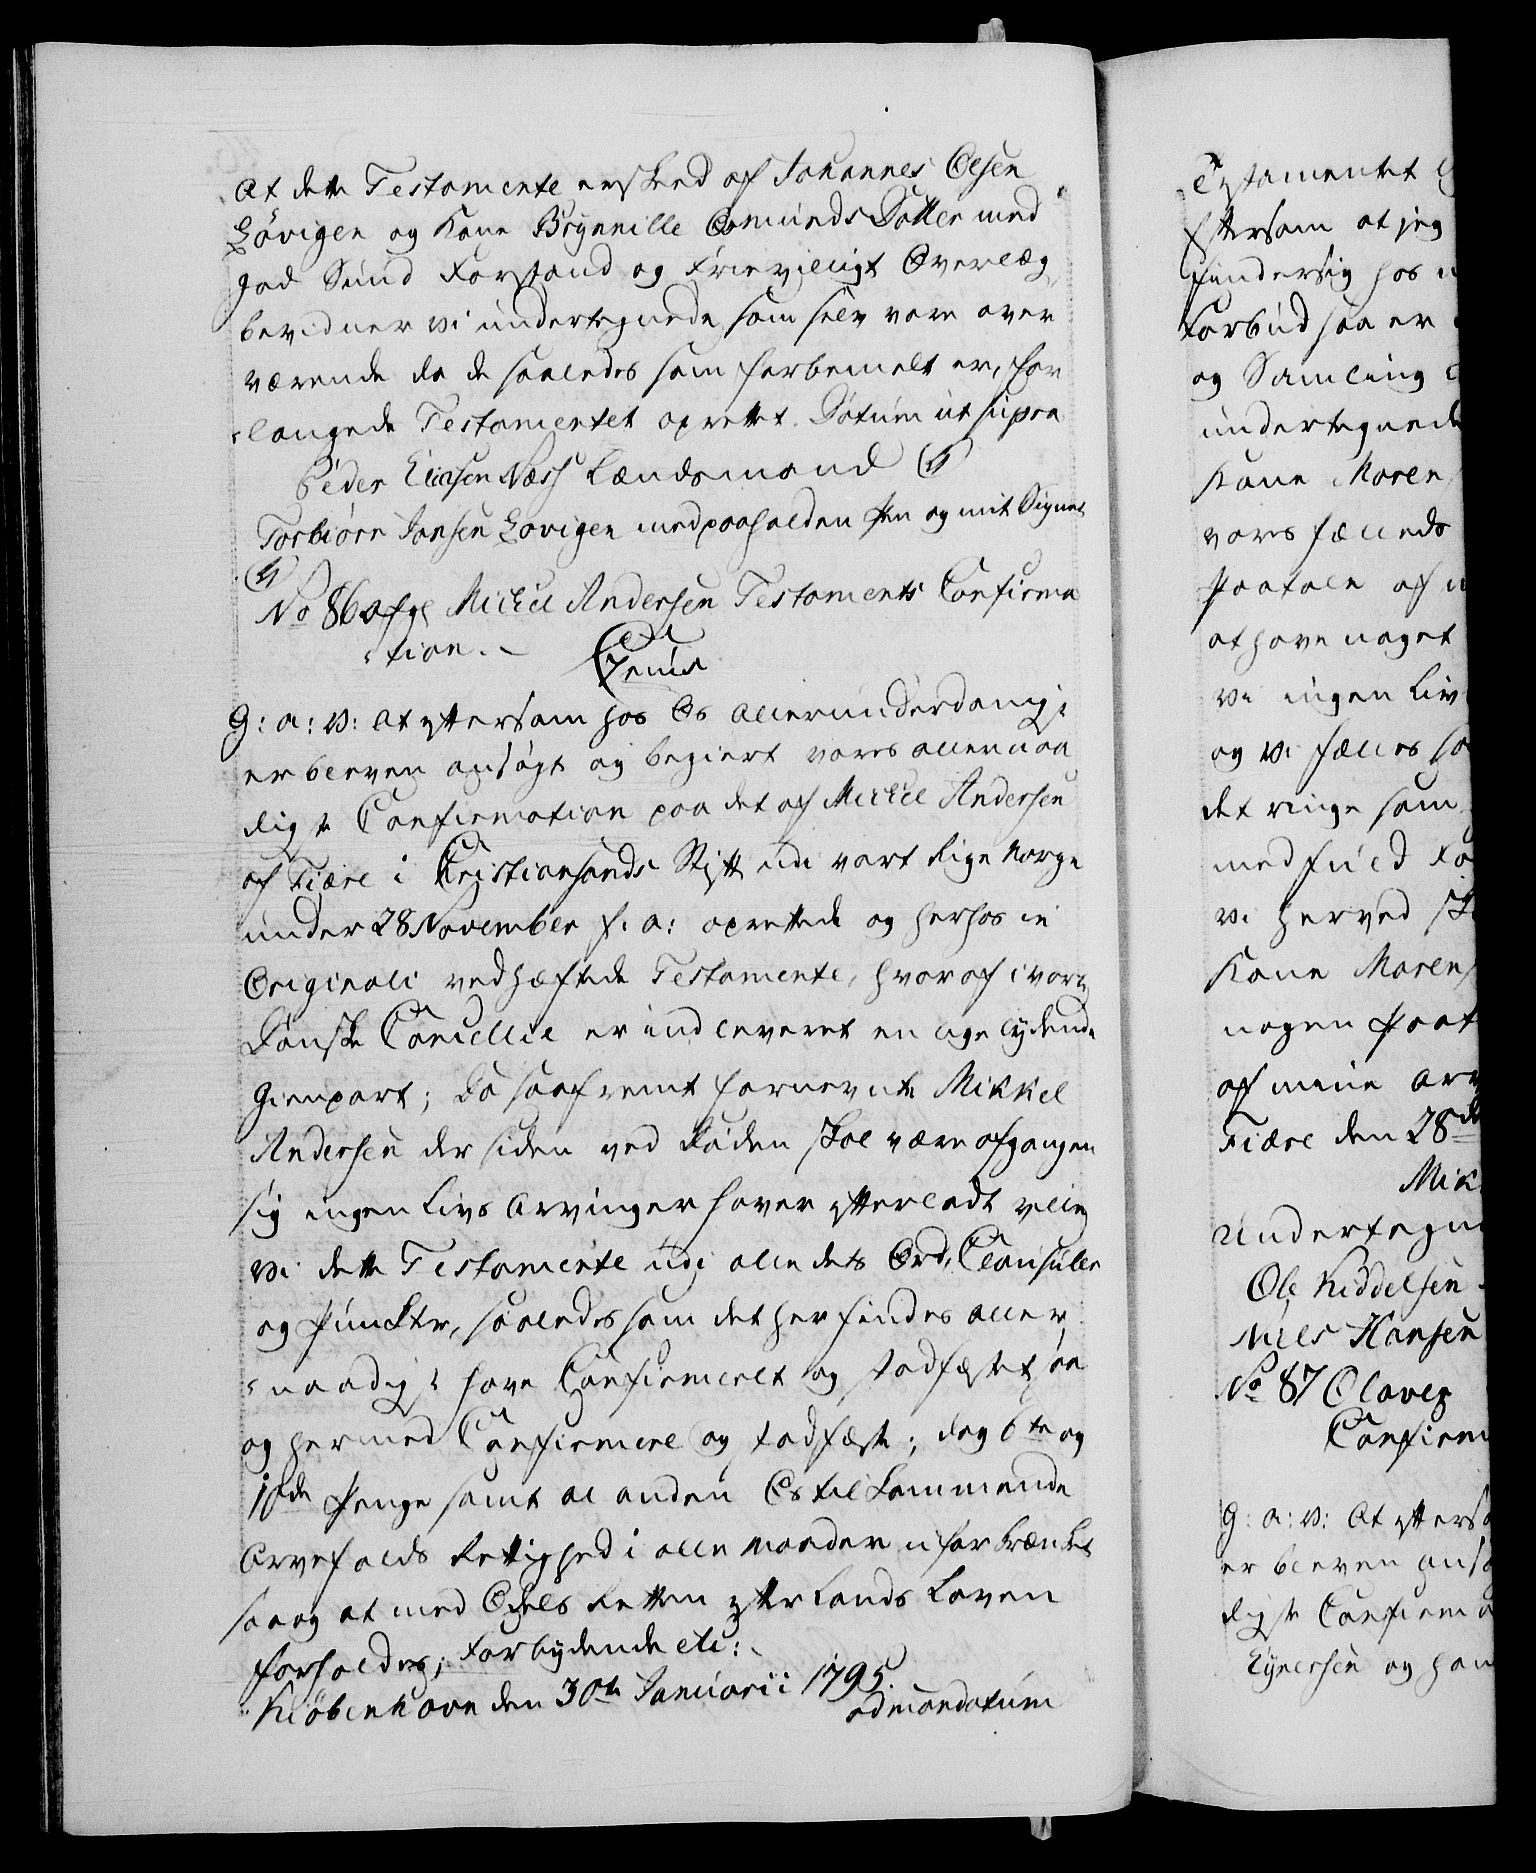 At dette Testamente er skeed af Johannes Olsen
Løvigen og Kone Brynnille Omunds Dotter med
god Sund Forstand og Frievilligt Overlæg
bevidner vi undertegnede som selv vare over
værende da de saaledes som forbemelt er, for
langede Testamentet oprettet. Datum ut supra
Peder Elinsen Næss Lændsmand
Torbiørn Jansen Lovigen med paaholden Pen og mit Signet
No 86 Michel Andersen Testaments Confirma
tion.
Genius
G: a: V: At eftersom hos Os allerunderdanigst
er bleven ansøgt og begiert vores allernaa
digste Confirmation paa det af Michel Andersen
af Fiære i Christiansands Stift udi vort Rige Norge
under 28 November f. a: oprettede og herhos in
Originali vedhæftede Testamente, hvoraf i vores
Danske Cancellie er indleveret en ligelydende
Gienpart; Da saafremt fornevnte Mikkel
Andersen der siden ved Døden skal være afgangen
sig ingen Livs Arvinger haver efterladt ville
Vi dette Testamente udi alle dets Ord, Clausuler
og Puncter, saaledes som det her findes aller
naadigst have Confirmeret og stadfæstet saa
og hermed Confirmere og stadfæste; dog 6te og
10de Penge samt al anden Os tilkommende
Arvefalds Rettighed i alle Maader uforkrænket
saa og at med Odels Retten efter Lands Loven
forholdes; Forbydende etc:
Kiøbenhavn den 30te Januarii 1795.
ad mandatum
Testamentet
Eftersom at jeg
findersig hos
Forbud saa er
og Samling
undertegnede
Kone Maren
vores fælleds
Paatale af
at have noget
Vi ingen Liv
og Vi fælles
det ringe som
med fuld
Vi herved
Kone Maren
nogen Paat
af mine Arv
Fiære den 28de
Mik
Undertegn
Ole Kiddelsen
Niels Hansen
No 87 Olaves
Confirm
G: a: V: At efterso
er bleven ansø
digste Confirma
Eynersen og han